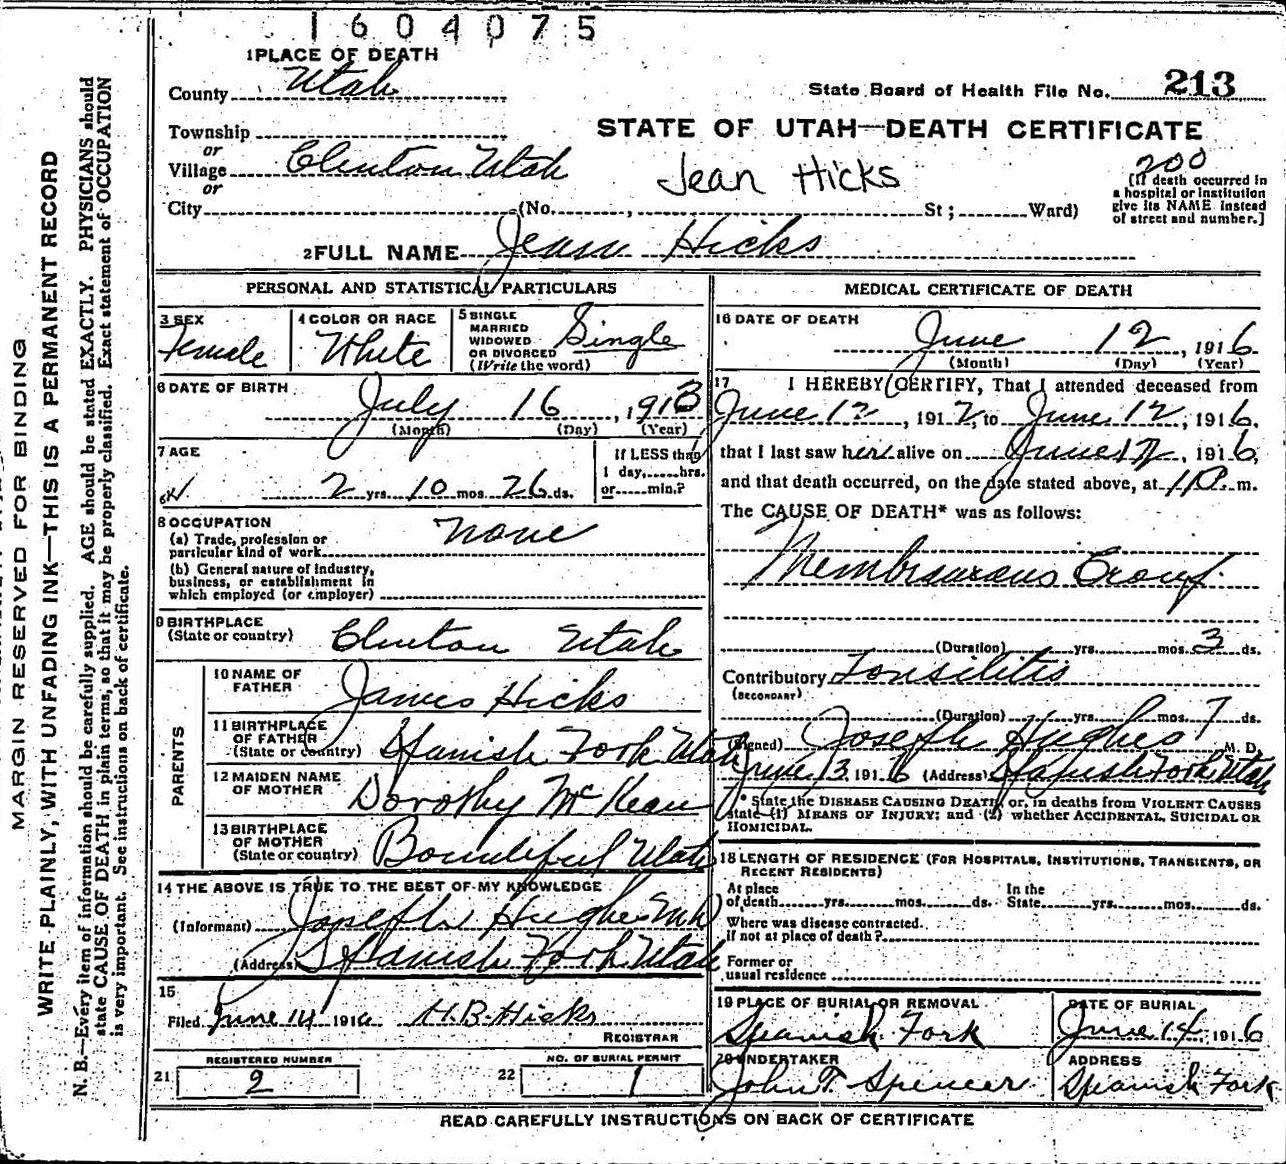 1604075
1 PLACE OF DEATH
County Utah
State Board of Health File No. 213
Township
or
STATE OF UTAH—DEATH CERTIFICATE
Village Clinton Utah
or
Jean Hicks
200
(If death occurred in
a hospital or institution
give its NAME instead
of street and number.]
City (No. , St ; Ward)
2 FULL NAME Jean Hicks
PERSONAL AND STATISTICAL PARTICULARS
3 SEX
Female
4 COLOR OR RACE
White
5 SINGLE
MARRIED
WIDOWED
OR DIVORCED
(Write the word)
Single
6 DATE OF BIRTH
July 16, 1913
(Month) (Day) (Year)
7 AGE
2 yrs. 10 mos. 26 ds.
If LESS than
1 day, hrs.
or min.?
8 OCCUPATION
(a) Trade, profession or
particular kind of work
none
(b) General nature of industry,
business, or establishment in
which employed (or employer)
9 BIRTHPLACE
(State or country) Clinton Utah
PARENTS
10 NAME OF
FATHER James Hicks
11 BIRTHPLACE
OF FATHER
(State or country) Spanish Fork Utah
12 MAIDEN NAME
OF MOTHER Dorothy McKean
13 BIRTHPLACE
OF MOTHER
(State or country) Bountiful Utah
14 THE ABOVE IS TRUE TO THE BEST OF MY KNOWLEDGE
(Informant) Joseph Hughes M.D.
(Address) Spanish Fork Utah
15
Filed June 14 1916 H.B. Hicks
REGISTRAR
REGISTERED NUMBER
21 2
NO. OF BURIAL PERMIT
22 1
MEDICAL CERTIFICATE OF DEATH
16 DATE OF DEATH
June 12, 1916
(Month) (Day) (Year)
17 I HEREBY CERTIFY, That I attended deceased from
June 12, 1912, to June 12, 1916,
that I last saw her alive on June 12, 1916,
and that death occurred, on the date stated above, at 11 P. m.
The CAUSE OF DEATH* was as follows:
Membranous Croup
(Duration) yrs. mos. 3 ds.
Contributory Tonsilitis
(SECONDARY)
(Duration) yrs. mos. 7 ds.
(Signed) Joseph Hughes M. D.
June 13 1916 (Address) Spanish Fork Utah
* State the DISEASE CAUSING DEATH, or, in deaths from VIOLENT CAUSES
state (1) MEANS OF INJURY; and (2) whether ACCIDENTAL, SUICIDAL OR
HOMICIDAL.
18 LENGTH OF RESIDENCE (FOR HOSPITALS, INSTITUTIONS, TRANSIENTS, OR
RECENT RESIDENTS)
At place
of death yrs. mos. ds.
In the
State yrs. mos. ds.
Where was disease contracted.
If not at place of death?
Former or
usual residence
19 PLACE OF BURIAL OR REMOVAL
Spanish Fork
DATE OF BURIAL
June 14, 1916
20 UNDERTAKER
John T Spencer
ADDRESS
Spanish Fork
READ CAREFULLY INSTRUCTIONS ON BACK OF CERTIFICATE
MARGIN RESERVED FOR BINDING
WRITE PLAINLY, WITH UNFADING INK—THIS IS A PERMANENT RECORD
N. B.—Every item of information should be carefully supplied. AGE should be stated EXACTLY. PHYSICIANS should
state CAUSE OF DEATH in plain terms, so that it may be properly classified. Exact statement of OCCUPATION
is very important. See instructions on back of certificate.